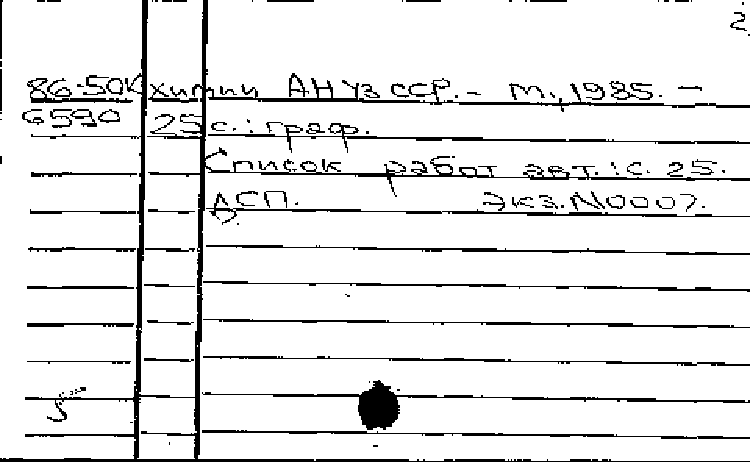 2
86-50К химии АН УзССР. - М., 1985. -
6590 25 с.: граф.
Список работ авт.: с. 25.
ДСП. Экз. N0007.
5